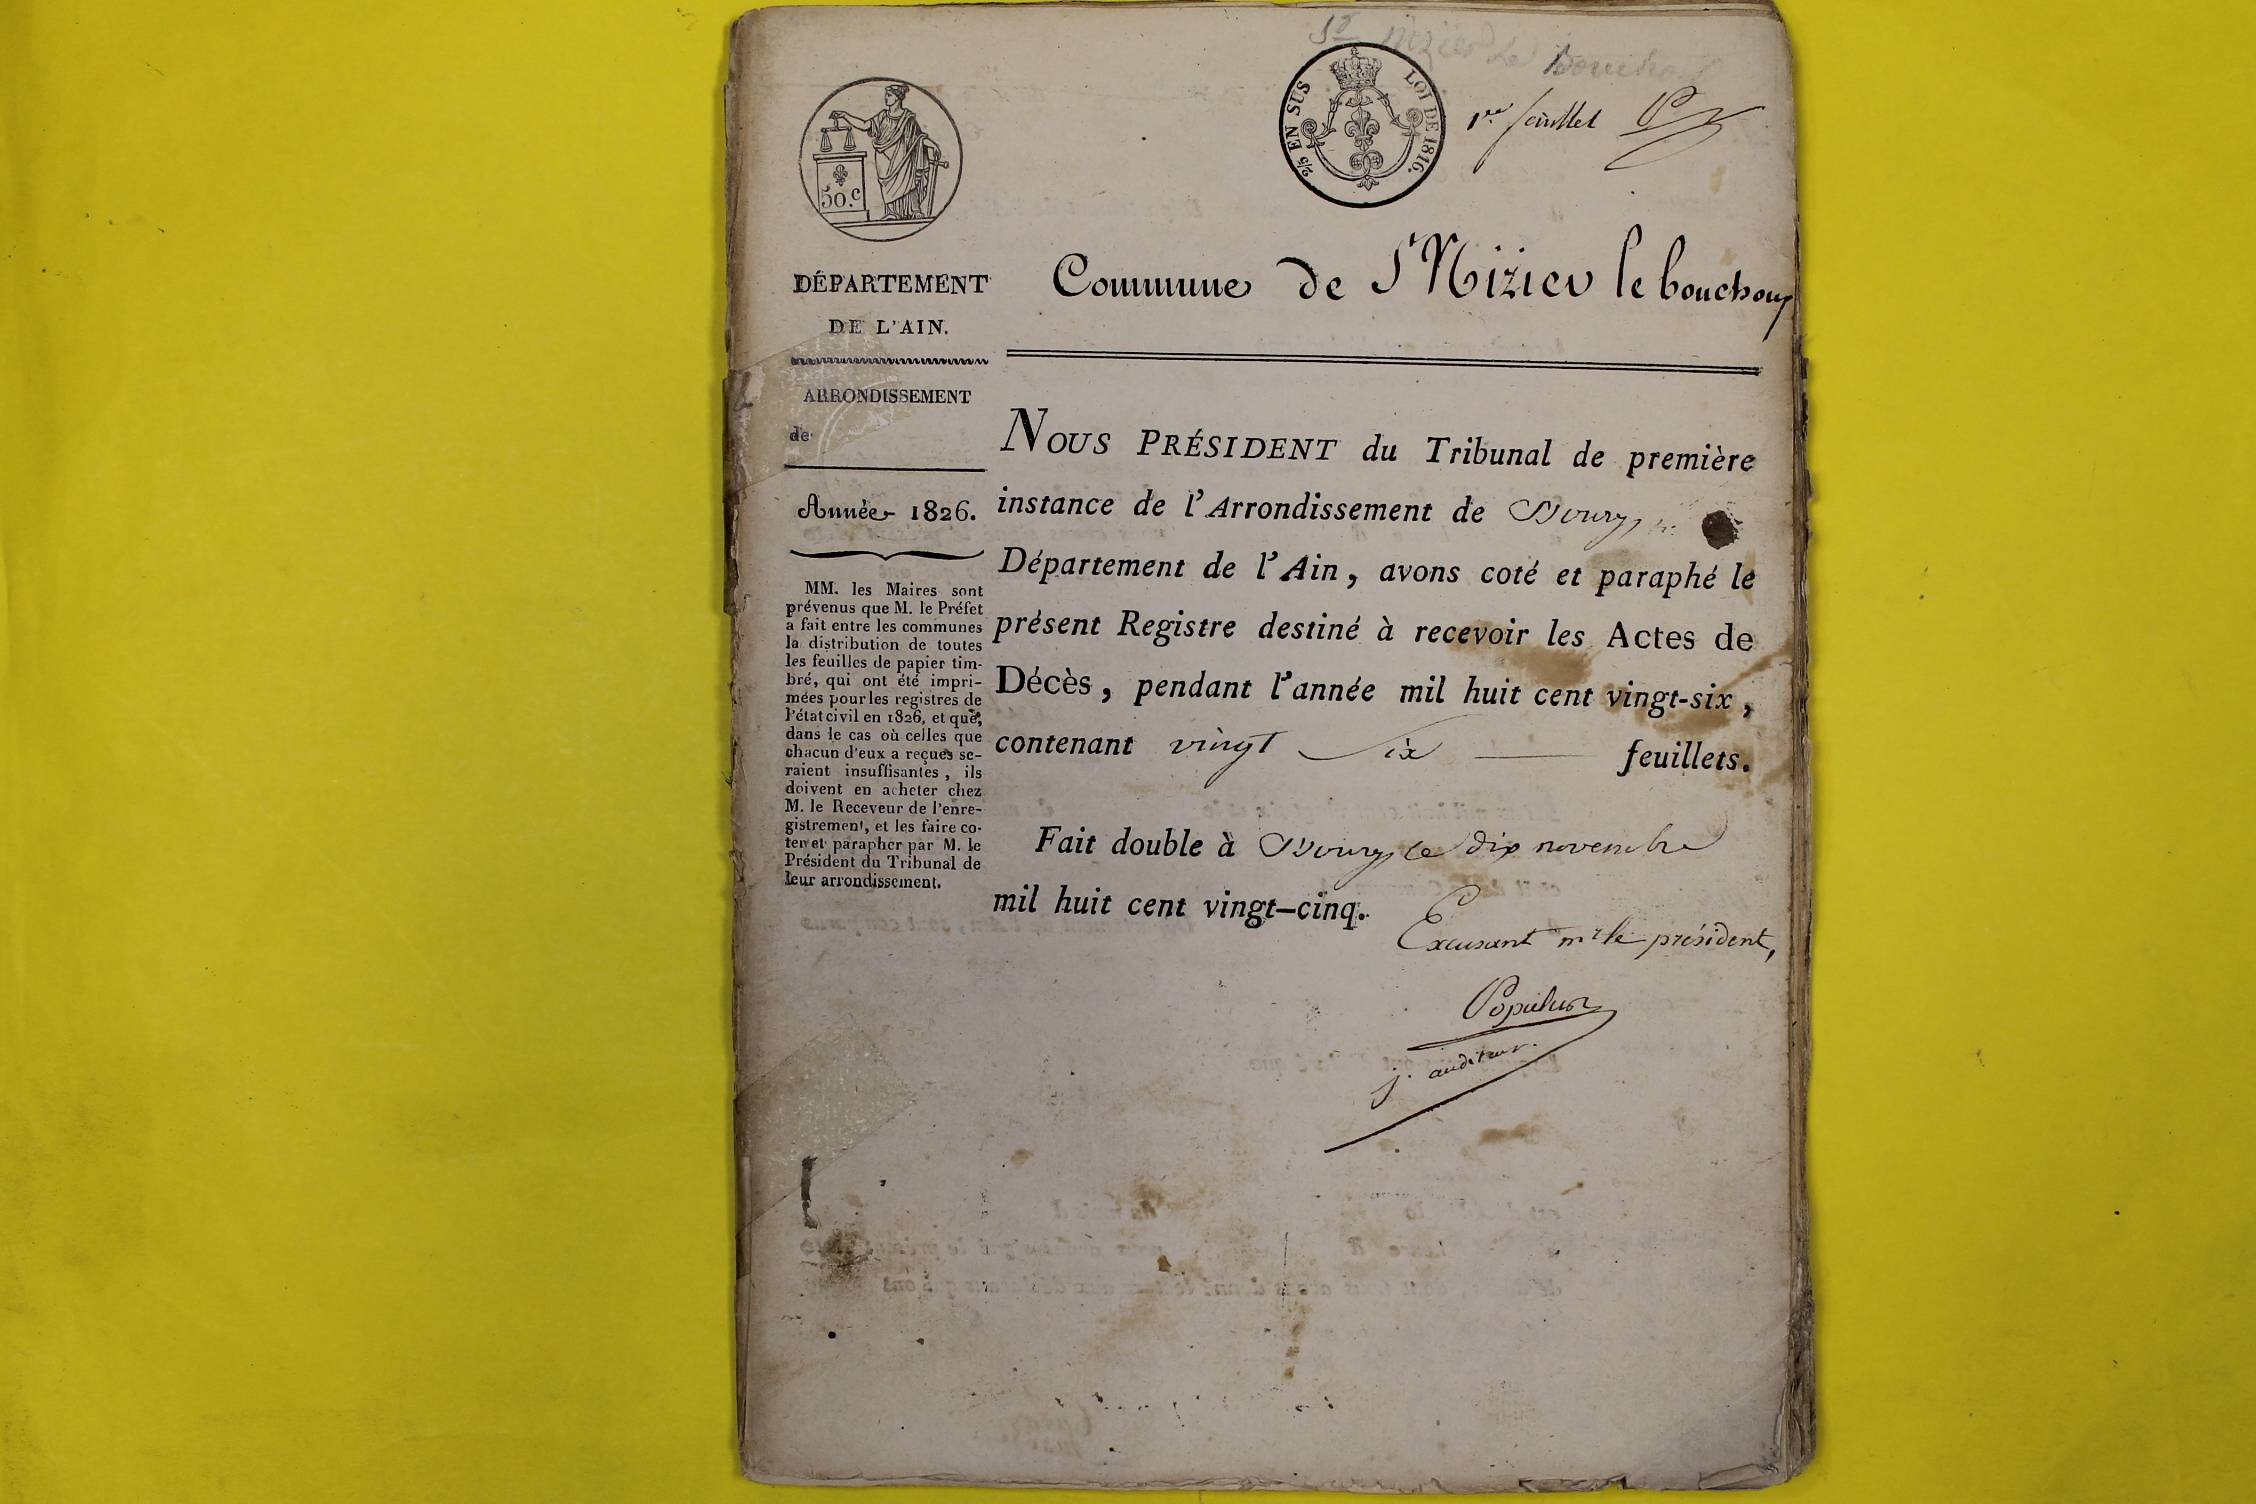 St Nizier Le Bouchoux
2/5 EN SUS LOI DE 1816.
1er feuillet
50.c
Commune de St Nizier le bouchoux
DÉPARTEMENT
DE L'AIN.
ARRONDISSEMENT
de
Année 1826.
MM. les Maires sont
prévenus que M. le Préfet
a fait entre les communes
la distribution de toutes
les feuilles de papier tim-
bré, qui ont été impri-
mées pour les registres de
l'état civil en 1826, et que,
dans le cas où celles que
chacun d'eux a reçues se-
raient insuffisantes, ils
doivent en acheter chez
M. le Receveur de l'enre-
gistrement, et les faire co-
ter et parapher par M. le
Président du Tribunal de
leur arrondissement.
NOUS PRÉSIDENT du Tribunal de première
instance de l'Arrondissement de Bourg
Département de l'Ain, avons coté et paraphé le
présent Registre destiné à recevoir les Actes de
Décès, pendant l'année mil huit cent vingt-six,
contenant vingt Six feuillets.
Fait double à Bourg le dix novembre
mil huit cent vingt-cinq.
Excusant mr le président,
Populus
j. auditeur.